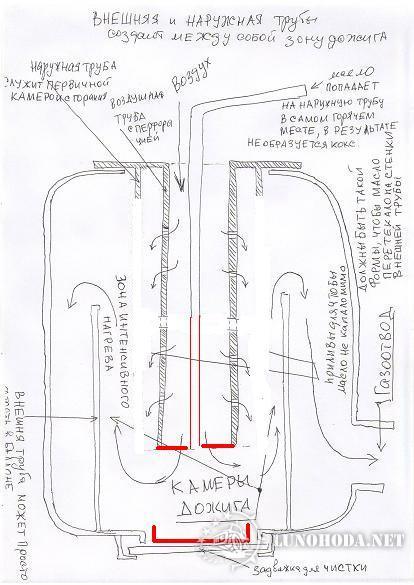 ВНЕШНЯЯ И НАРУЖНАЯ ТРУБЫ
СОЗДАЮТ МЕЖДУ СОБОЙ ЗОНУ ДОЖИГА
НАРУЖНАЯ ТРУБА
СЛУЖИТ ПЕРВИЧНОЙ
КАМЕРОЙ СГОРАНИЯ
ВОЗДУШНАЯ
ТРУБА
С ПЕРФОРА
ЦИЕЙ
ВОЗДУХ
МАСЛО
ПОПАДАЕТ
НА НАРУЖНУЮ ТРУБУ
В САМОМ ГОРЯЧЕМ
МЕСТЕ, В РЕЗУЛЬТАТЕ
НЕ ОБРАЗУЕТСЯ КОКС.
ДОЛЖНЫ БЫТЬ ТАКОЙ
ФОРМЫ, ЧТОБЫ МАСЛО
ПЕРЕТЕКАЛО НА СТЕНКИ
ВНЕШНЕЙ ТРУБЫ
ПРИЛИВЫ ДЛЯ ЧТОБЫ
МАСЛО НЕ КАПАЛО МИМО
ГАЗООТВОД
ЗОНА ИНТЕНСИВНОГО
НАГРЕВА
ВНЕШНЯЯ ТРУБА МОЖЕТ ПРОСТО
КАМЕРЫ
ДОЖИГА
ЗАДВИЖКА ДЛЯ ЧИСТКИ
LUNOHODA.NET